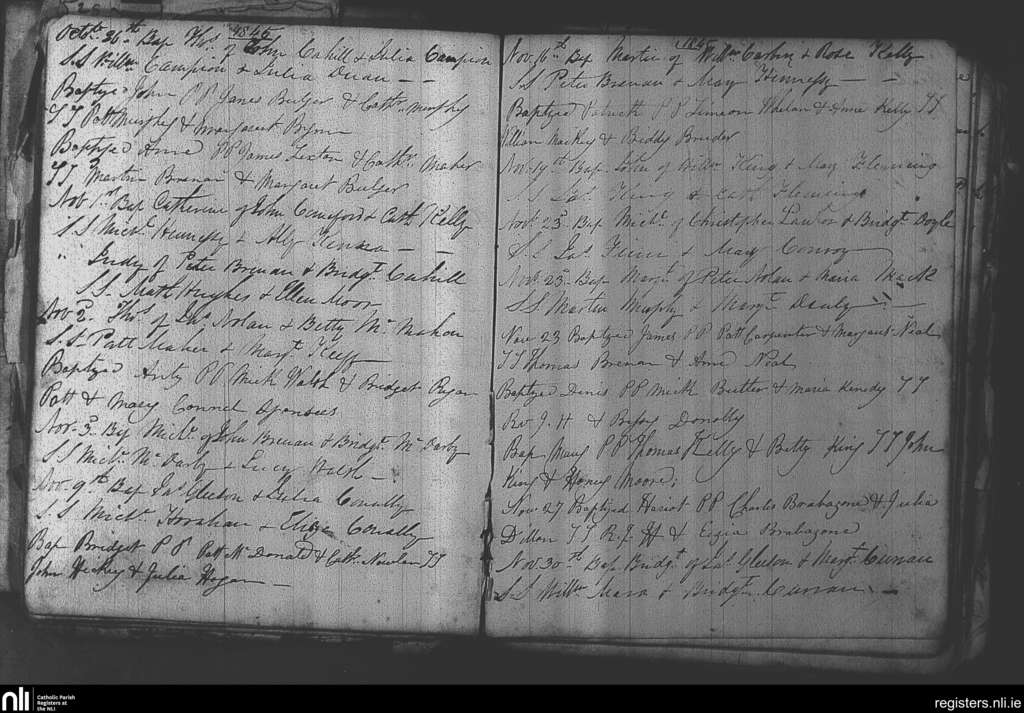 1845
Octr 26th Bap Thos of John Cahill & Julia Campion
S.S Willm Campion & Julia Duan
Baptyzd John P P James Bulger & Cathe Murphy
S S Patt Murphy & Margaret Byrn
Baptyzd Anne P P James Sexton & Cathe Maher
SS Martin Brenan & Margaret Bulger
Nov 1st Bap Catherine of John Comeford & Cath Kelly
S S Michl Hennessy & Ally Kenna
" Judy of Peter Brenan & Bridgt Cahill
S.S. Matt Hughes & Ellen Moor
Nov 2d Thos of Nolan & Betty Mc Mahon
S.S Patt Maher & Margt Keeff
Baptyzd Anty P P Mick Walsh & Bridget Ryan
Patt & Mary Connel Sponsers
Nov. 3d Bap Michl of John Brenan & Bridgt Mc Darby
S S Michl Mc Darby & Lucy Walsh
Nov. 9th Bap Jas Gleeson & Julia Conally
S. S Michl Horahan & Eliza Conally
Bap Bridget P P Patt Mc Donald & Cathe Nowlan SS
John Hickey & Julia Hogan
1845
Nov. 16th Bap Martin of Willm & Rose Kelly
S.S Peter Brenan & Mary Hennessy
Baptyzed Patrick P P Simeon Whelan & Anne Kelly SS
William Mackey & Biddy
Nov. 19th Bap. John of Willm King & Mary Flemming
S S Jas King & Cath Flemming
Nov. 23d Bap Michl of Christopher Lawlor & Bridgt Doyle
S.S Jas Finn & Mary Conroy
Nov 23d Bap Margt of Peter Nolan & Maria
S S Martin Murphy & Margt
Nov 23 Baptyzed James P P Patt Carpenter & Margaret Neal
S S Thomas Brenan & Anne Neal
Baptyzed Denis P P Mick Butler & Maria Kenedy S S
Rev J. H & Donolly
Bap Mary P P Thomas Kelly & Betty King S S John
King & Honey Moore;
Nov 27 Baptyzed Hariot P P Charles Brabazone & Julia
Dillon S S R. J H & Brabazone
Nov. 30th Bap Bridgt of Jas Gleeson & Margt Curran
S.S Willm Mara & Bridgt Curran
nli
Catholic Parish
Registers at
the NLI
registers.nli.ie